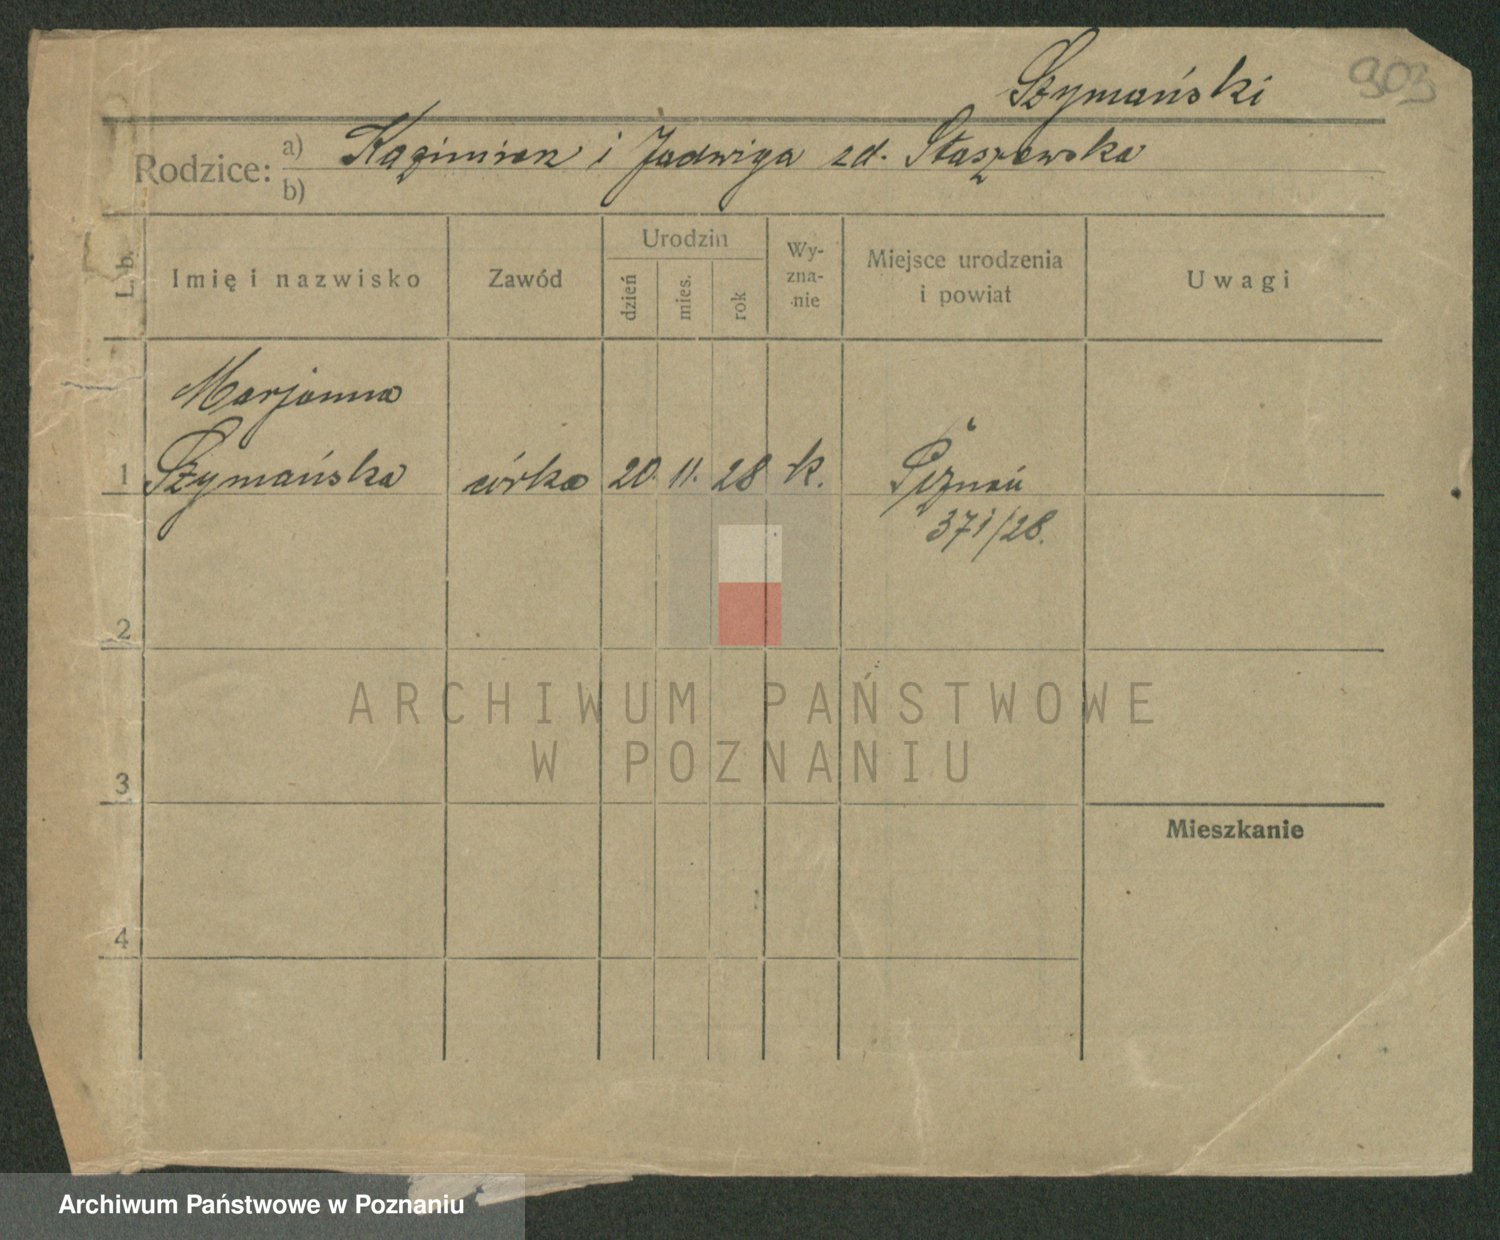 Szymański 903
Rodzice: a) Kazimierz i Jadwiga zd. Staszewska
b)
L. b.
Imię i nazwisko
Zawód
Urodzin
dzień
mies.
rok
Wy-
zna-
nie
Miejsce urodzenia
i powiat
Uwagi
Marjanna
1 Szymańska córka 20. 11. 28 k. Poznań
371/28.
2
ARCHIWUM PAŃSTWOWE
W POZNANIU
3
Mieszkanie
4
Archiwum Państwowe w Poznaniu